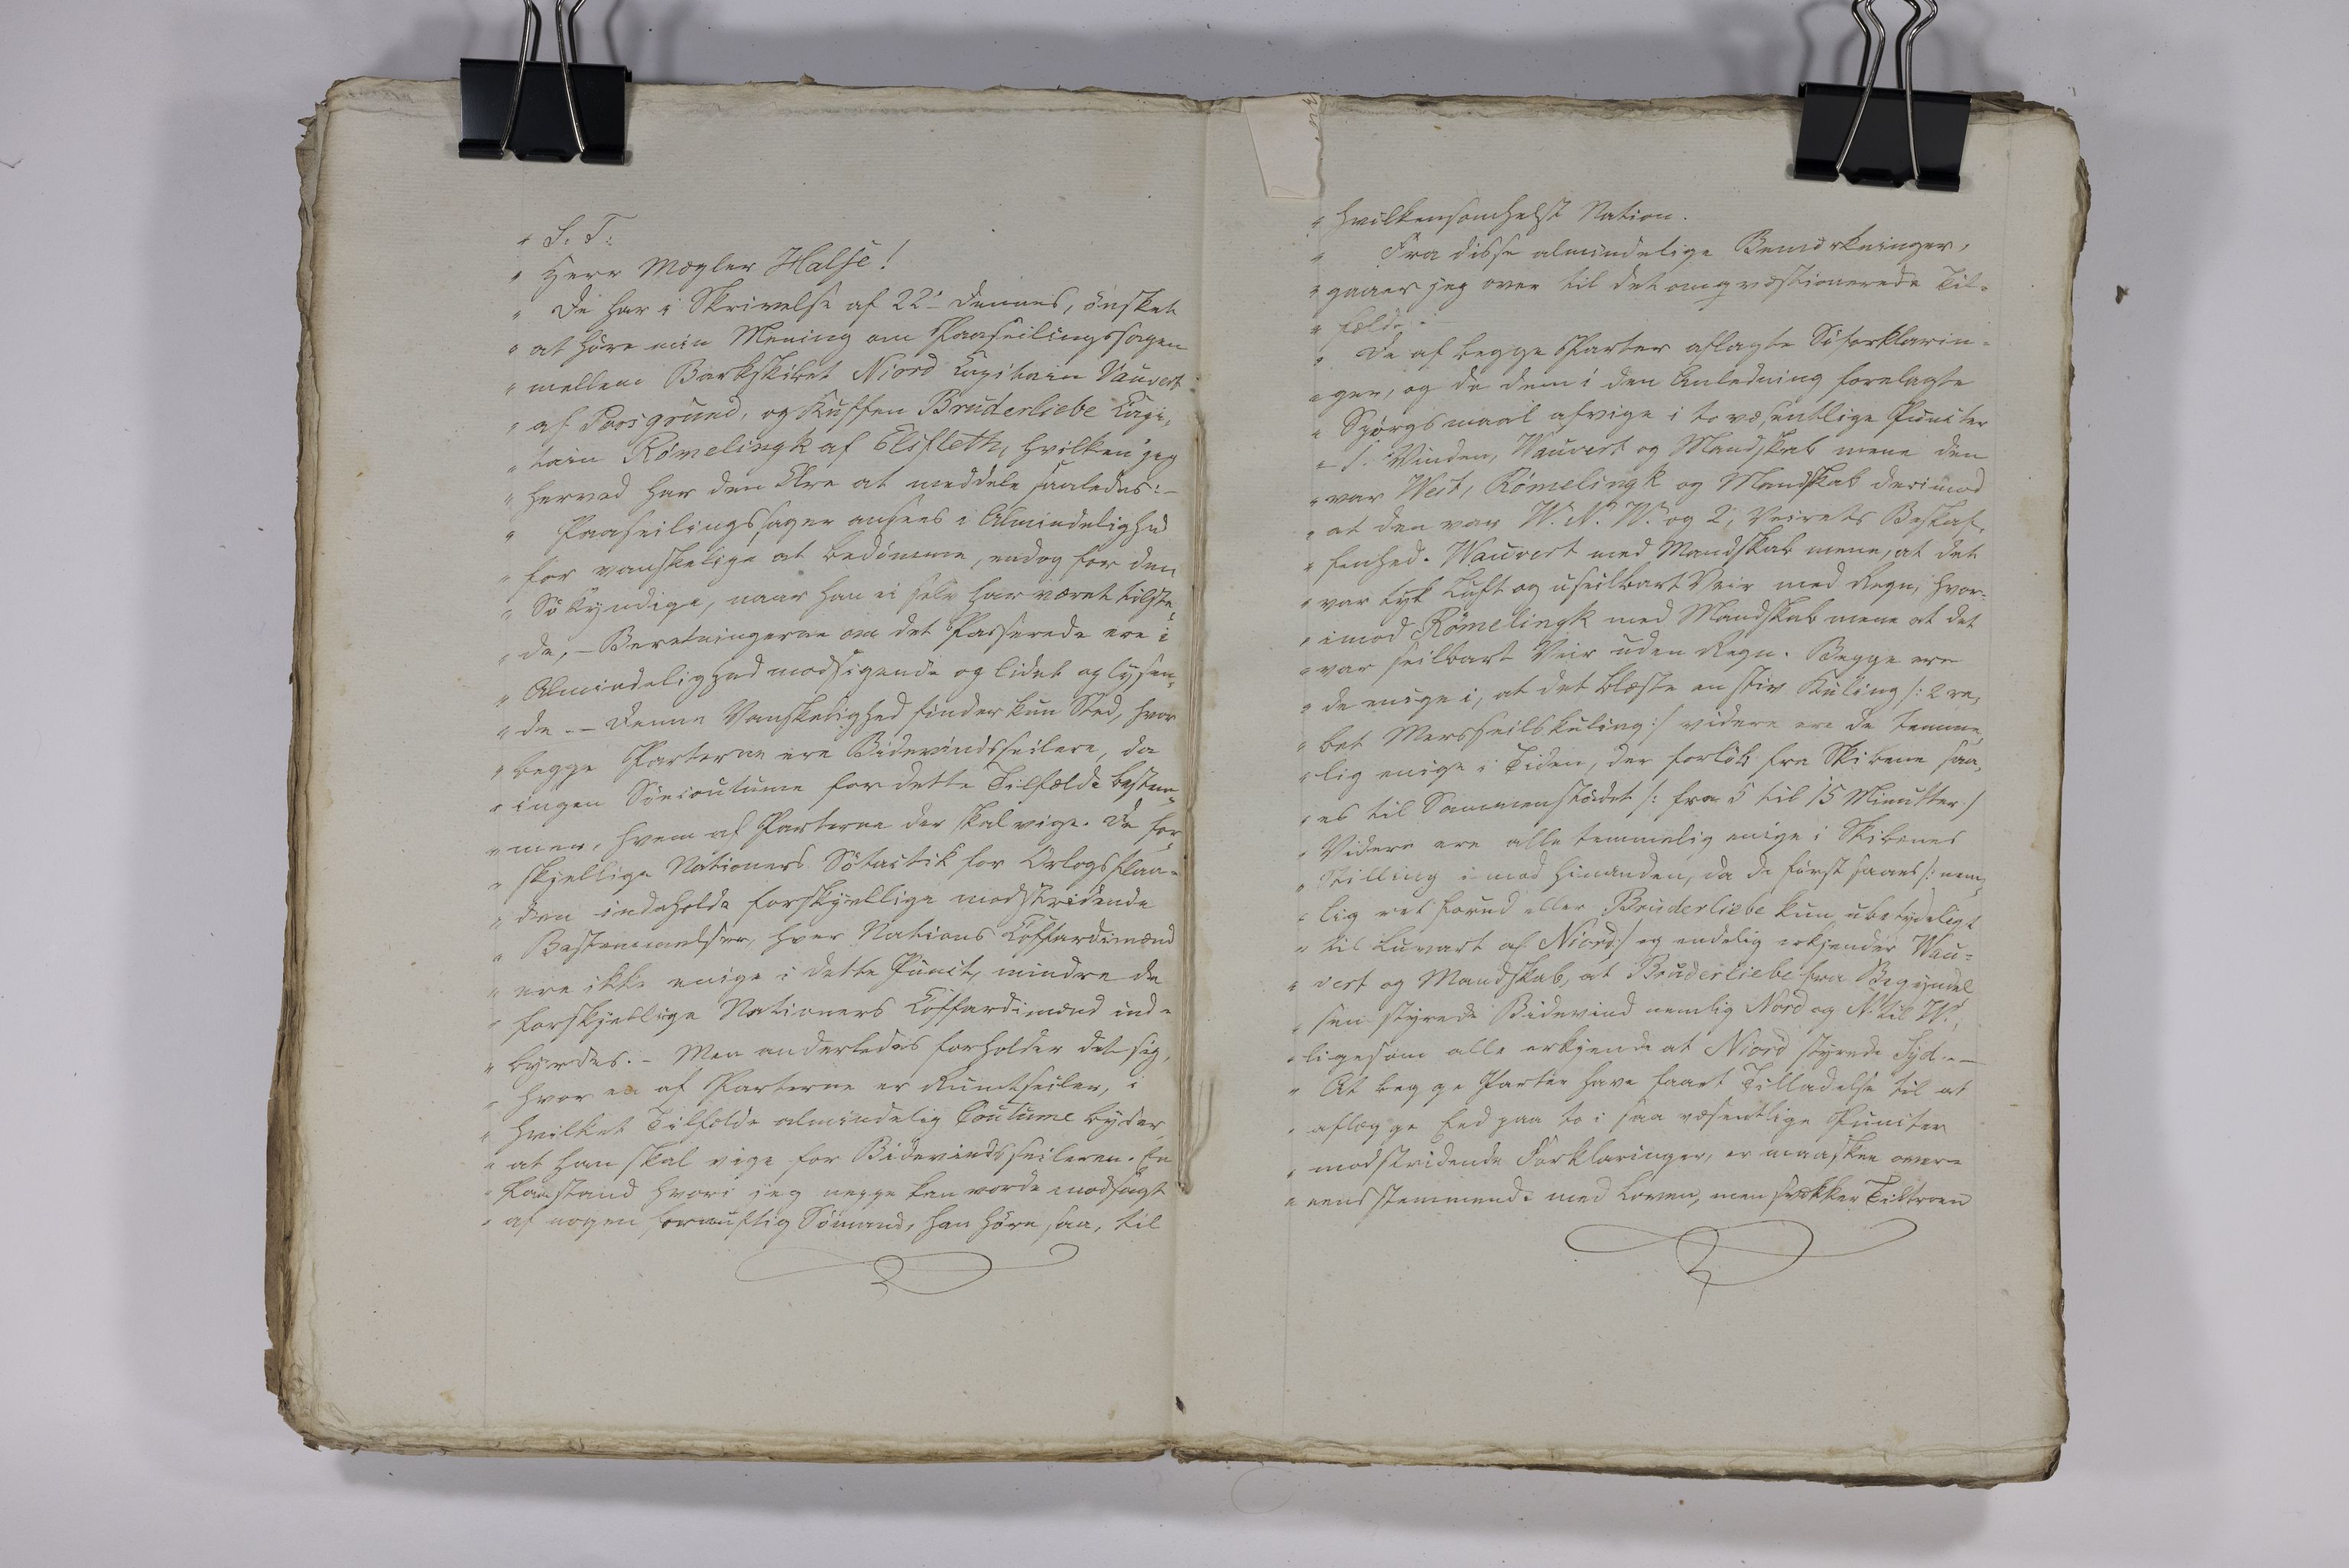 " S. T.
" Herr Mægler Halse!
" De har i Skrivelse af 22' dennes, ønsket
" at høre min Mening om Paaseilingssagen
" mellem Barkskibet Niord Capitain Vauvert
" af Porsgrund, og Kuffen Bruderliebe Capi-
" tain Römelingk af Elsfleth, hvilken jeg
" herved har den Ære at meddele saaledes: -
" Paaseilingssager ansees i Almindelighed
" for vanskelige at bedømme, endog for den
" Søkyndige, naar han ei selv har været tilste-
" de, - Beretningerne om det Passerede ere i
" Almindelighed modsigende og lidet oplysen-
" de -- Denne Vanskelighed finder kun Sted, hvor
" begge Parterne ere Bidevindsseilere, da
" ingen Söecoutume for dette Tilfælde bestem-
" mer, hvem af Parterne der skal vige. De for-
" skjellige Nationers Søtactik for Orlogsflaa-
" den indeholde forskjellige modstridende
" Bestemmelser, hver Nations Coffardimænd
" ere ikke enige i dette Punct, mindre de
" forskjellige Nationers Coffardimænd ind-
" byrdes. - Men anderledes forholder det sig,
" hvor en af Parterne er Rumtseiler, i
" hvilket Tilfælde almindelig Coutume byder,
" at han skal vige for Bidevindsseileren. En
" Paastand hvori jeg neppe kan vorde modsagt
" af nogen fornuftig Sømand, han høre saa, til
" hvilkensomhelst Nation.
" Fra disse almindelige Bemærkninger,
" gaaer jeg over til det omqvæstionerede Til-
" fælde. -
" De af begge Parter aflagte Søforklarin-
" ger, og de dem i den Anledning forelagte
" Spørgsmaal afvige i to væsentlige Puncter
" 1. Vinden, Wauvert og Mandskab mene den
" var West, Römelingk og Mandskab derimod
" at den var W. N. W. og 2, Veirets Beskaf-
" fenhed. Wauvert med Mandskab mene, at det
" var tyk Luft og useilbart Veir med Regn, hvor-
" imod Römelingk med Mandskab mene at det
" var seilbart Veir uden Regn. Begge ere
" de enige i, at det blæste en stiv Kuling /: 2 re-
" bet Mersseilskuling :/ videre ere de temme-
" lig enige i Tiden, der forløb fra Skibene saa-
" es til Sammenstødet /: fra 5 til 15 Minutter :/
" Videre ere alle temmelig enige i Skibenes
" Stilling imod hinanden, da de først saaes /: nem-
" lig ret forud eller Bruderliebe kun ubetydeligt
" til Luvart af Niord :/ og endelig erkjender Wau-
" vert og Mandskab, at Bruderliebe fra Begyndel
" sen styrede Bidevind nemlig Nord og N. til W.,
" ligesom alle erkjende at Niord styrede Syd. -
" At begge Parter have faaet Tilladelse til at
" aflægge Eed paa to i saa væsentlige Puncter
" modstridende Forklaringer, er maaskee over-
" eensstemmende med Loven, men svækker Tiltroen